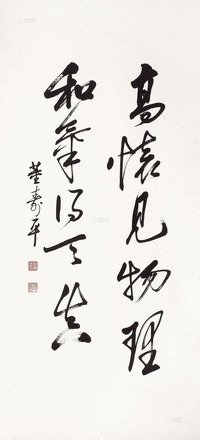 高懷見物理
和氣得天真
董壽平